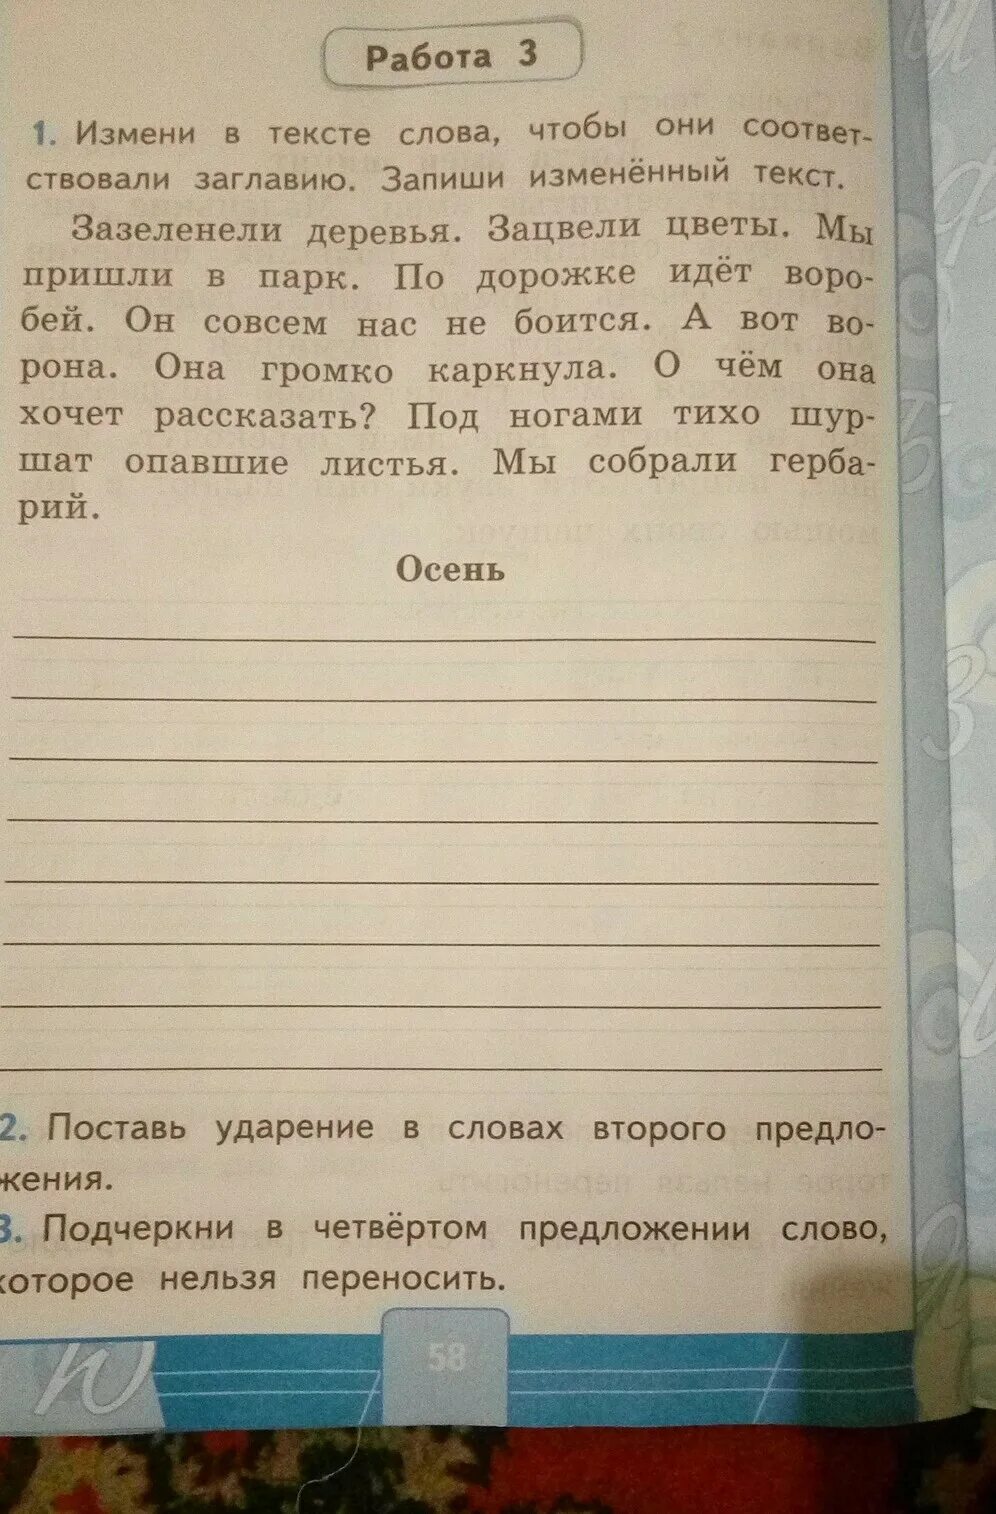 Работа 3
1. Измени в тексте слова, чтобы они соответ-
ствовали заглавию. Запиши изменённый текст.
Зазеленели деревья. Зацвели цветы. Мы
пришли в парк. По дорожке идёт воро-
бей. Он совсем нас не боится. А вот во-
рона. Она громко каркнула. О чём она
хочет рассказать? Под ногами тихо шур-
шат опавшие листья. Мы собрали герба-
рий.
Осень
2. Поставь ударение в словах второго предло-
жения.
3. Подчеркни в четвёртом предложении слово,
которое нельзя переносить.
58